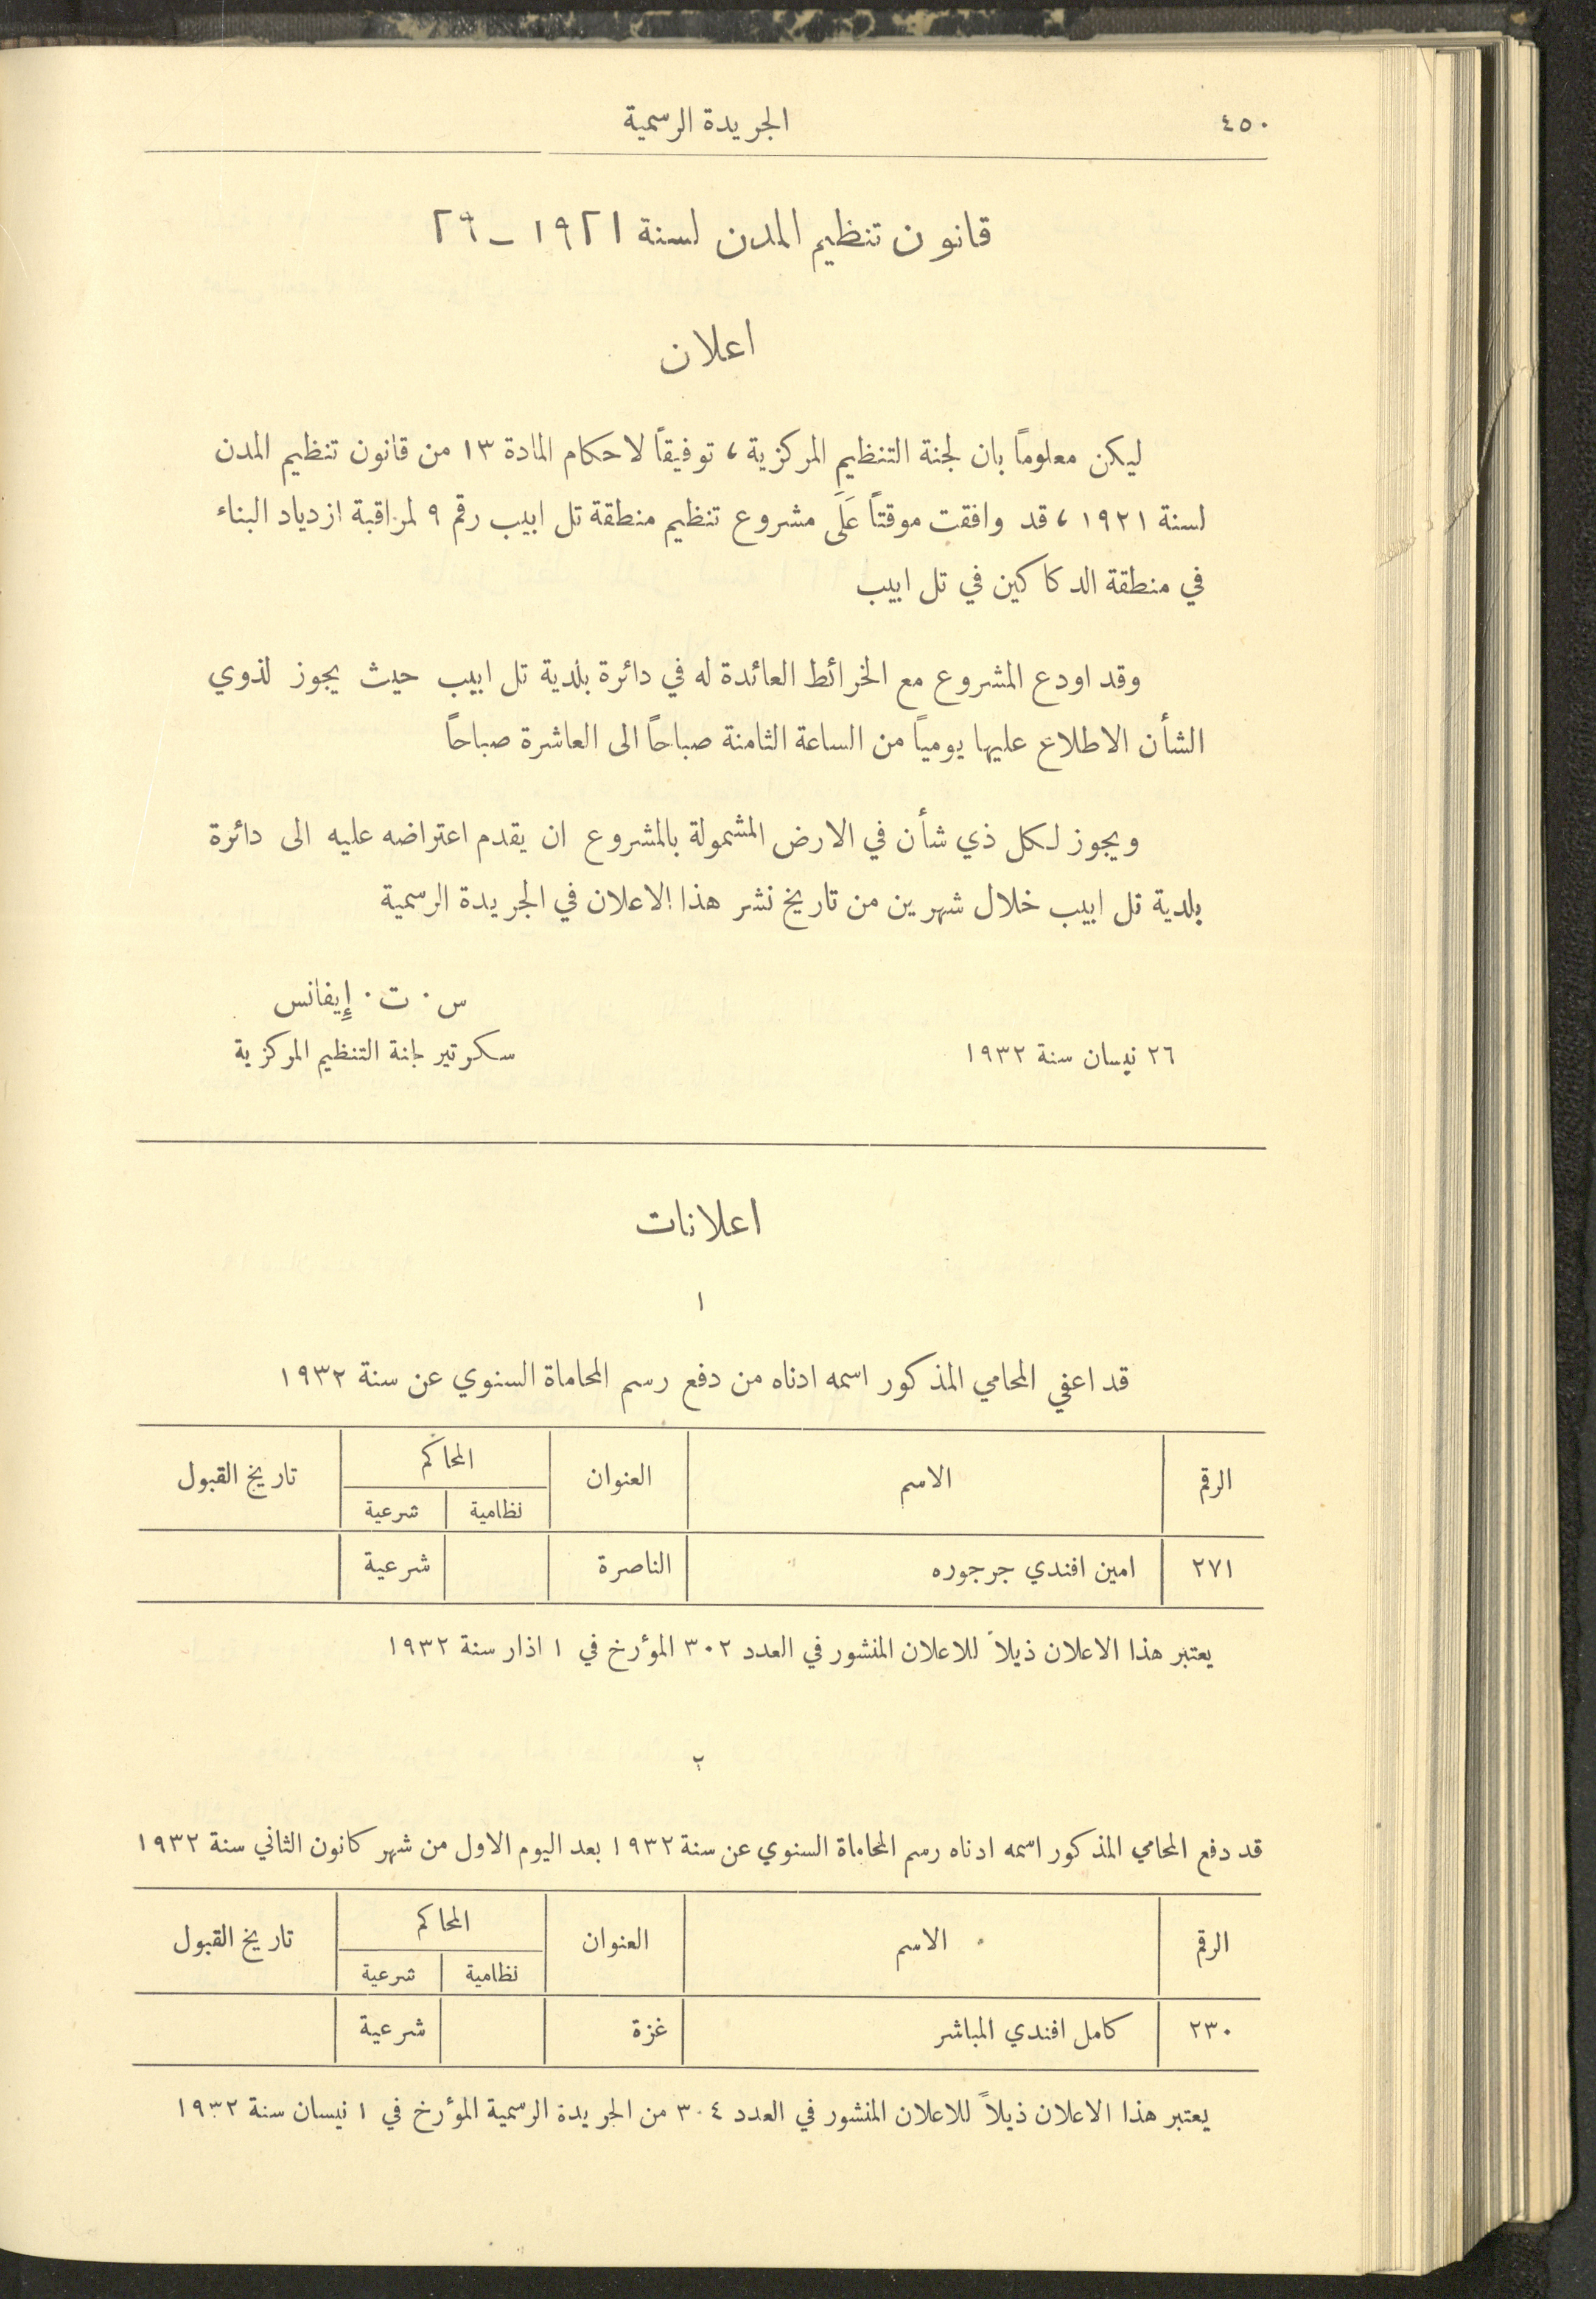 ٤٥٠
الجريدة الرسمية
قانون تنظيم المدن لسنة ١٩٢١ – ٢٩
اعلان
ليكن معلوماً بان لجنة التنظيم المركزية ، توفيقاً لاحكام المادة ١٣ من قانون تنظيم المدن
لسنة ١٩٢١ ، قد وافقت موقتاً عَلَى مشروع تنظيم منطقة تل ابيب رقم ٩ لمراقبة ازدياد البناء
في منطقة الدكاكين في تل ابيب
وقد اودع المشروع مع الخرائط العائدة له في دائرة بلدية تل ابيب حيث يجوز لذوي
الشأن الاطلاع عليها يومياً من الساعة الثامنة صباحاً الى العاشرة صباحاً
ويجوز لكل ذي شأن في الارض المشمولة بالمشروع ان يقدم اعتراضه عليه الى دائرة
بلدية تل ابيب خلال شهرين من تاريخ نشر هذا الاعلان في الجريدة الرسمية
س . ت . إيفانس
٢٦ نيسان سنة ١٩٣٢ سكرتير لجنة التنظيم المركزية
اعلانات
١
قد اعفي المحامي المذكور اسمه ادناه من دفع رسم المحاماة السنوي عن سنة ١٩٣٢
الرقم الاسم العنوان المحاكم تاريخ القبول
نظامية شرعية
٢٧١ امين افندي جرجوره الناصرة شرعية
يعتبر هذا الاعلان ذيلاً للاعلان المنشور في العدد ٣٠٢ المؤرخ في ١ اذار سنة ١٩٣٢
٢
قد دفع المحامي المذكور اسمه ادناه رسم المحاماة السنوي عن سنة ١٩٣٢ بعد اليوم الاول من شهر كانون الثاني سنة ١٩٣٢
الرقم الاسم العنوان المحاكم تاريخ القبول
نظامية شرعية
٢٣٠ كامل افندي المباشر غزة شرعية
يعتبر هذا الاعلان ذيلاً للاعلان المنشور في العدد ٣٠٤ من الجريدة الرسمية المؤرخ في ١ نيسان سنة ١٩٣٢